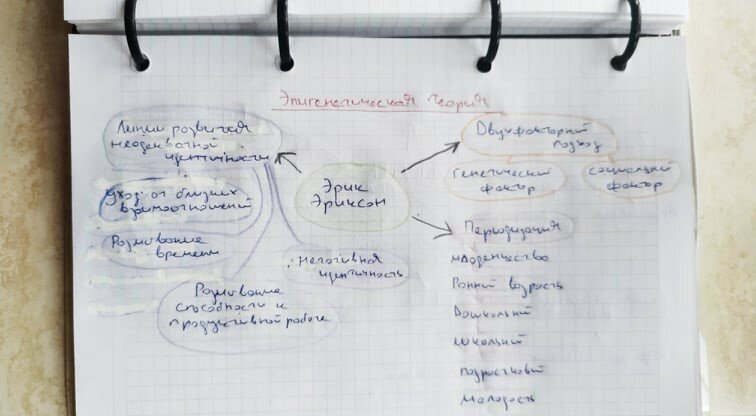 Эпигенетическая теория
Линии развития
неадекватной
идентичности
Уход от близких
взаимоотношений
Размывание
времени
Размывание
способности к
продуктивной работе
негативная
идентичность
Эрик
Эриксон
Двухфакторный
подход
генетический
фактор
социальный
фактор
Периодизация
младенчество
Ранний возрасть
Дошкольный
школьный
подростковый
молодость